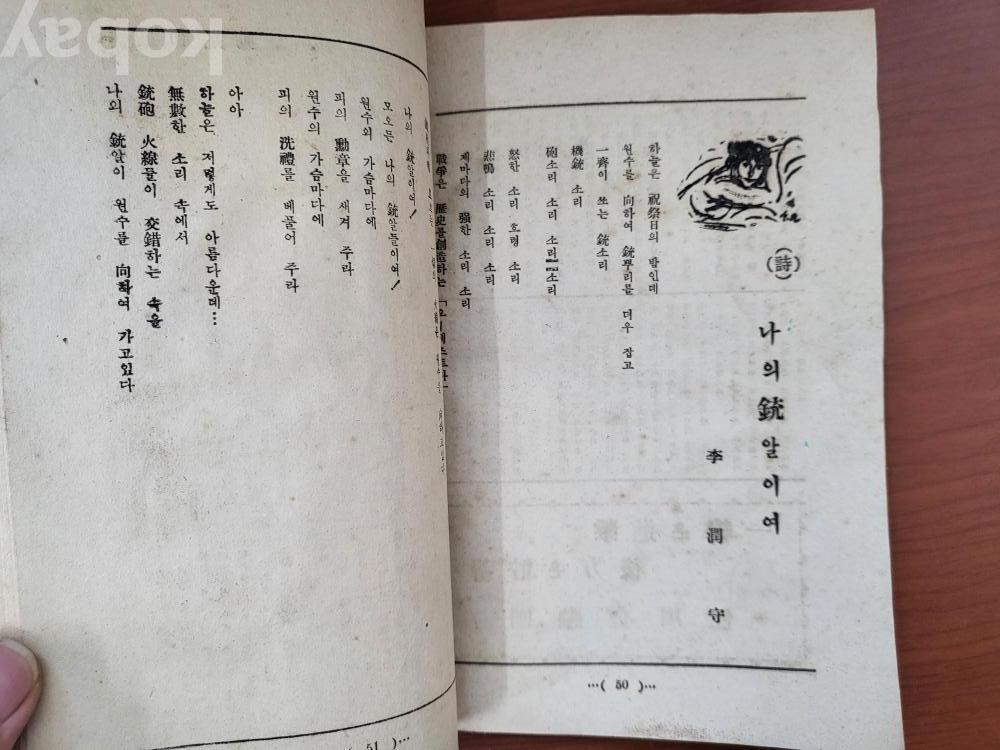 (詩)
나의 銃알이여
李潤守
하늘은 祝祭日의 밤인데
원수를 向하여 銃뿌리를 더우 잡고
一齊이 쏘는 銃소리
機銃 소리
砲소리 소리 소리 소리
怒한 소리 호령 소리
悲鳴 소리 소리 소리
제마다의 强한 소리 소리
戰爭은 歷史를 創造하는
…( 50 )…
나의 銃알이여!
모오든 나의 銃알들이여!
원수의 가슴마다에
피의 勳章을 새겨 주라
원수의 가슴마다에
피의 洗禮를 베풀어 주라
아아
하늘은 저렇게도 아름다운데…
無數한 소리 속에서
銃砲 火線들이 交錯하는 속을
나의 銃알이 원수를 向하여 가고있다
51 )…
kobay